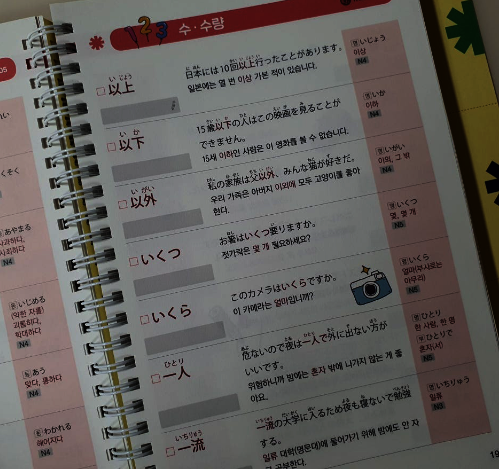 수·수량
い じょう
□以上
日本には10回以上行ったことがあります。
일본에는 열 번 이상 가본 적이 있습니다.
명 いじょう
이상
N4
い か
□以下
15歳以下の人はこの映画を見ることが
できません。
15세 이하인 사람은 이 영화를 볼 수 없습니다.
명 いか
이하
N4
い がい
□以外
私の家族は父以外、みんな猫が好きだ。
우리 가족은 아버지 이외에 모두 고양이를 좋아
한다.
명 いがい
이외, 그 밖
N4
□いくつ
お箸はいくつ要りますか。
젓가락은 몇 개 필요하세요?
명 いくつ
몇, 몇 개
N5
□いくら
このカメラはいくらですか。
이 카메라는 얼마입니까?
명 いくら
얼마(부사로는
아무리)
N5
ひとり
□一人
危ないので夜は一人で外に出ない方が
いいです。
위험하니까 밤에는 혼자 밖에 나가지 않는 게 좋
아요.
명 ひとり
한 사람, 한 명
ひとりで
혼자(서)
N5
いちりゅう
□一流
一流の大学に入るため夜も寝ないで勉強
する。
일류 대학(명문대)에 들어가기 위해 밤에도 안 자
고 공부한다.
명 いちりゅう
일류
N3
あやまる
사과하다,
사죄하다
N4
いじめる
(약한 자를)
괴롭히다,
학대하다
N4
あう
맞다, 통하다
N4
わかれる
헤어지다
N4